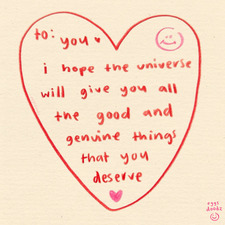 to: you
i hope the universe
will give you all
the good and
genuine things
that you
deserve